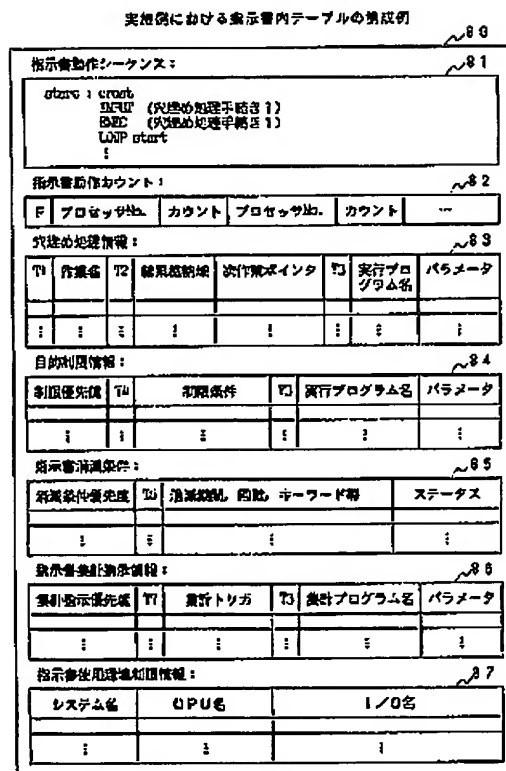 実施例における指示書内テーブルの構成例
80
指示書動作シーケンス: 81
start : creat
INPUT (穴埋め処理手続き1)
EXEC (穴埋め処理手続き1)
LOUP start
:
指示書動作カウント: 82
F プロセッサNo. カウント プロセッサNo. カウント …
穴埋め処理情報: 83
T1 作業名 T2 結果格納域 次作業ポインタ T3 実行プログラム名 パラメータ
: : : : : : : :
目的制限情報: 84
制限優先度 T4 制限条件 T3 実行プログラム名 パラメータ
: : : : : :
指示書消滅条件: 85
消滅条件優先度 消滅期間, 回数, キーワード等 ステータス
: : : :
指示書集計指示情報: 86
集計指示優先度 T7 集計トリガ T3 集計プログラム名 パラメータ
: : : : : :
指示書使用環境制限情報: 87
システム名 CPU名 I/O名
: : :